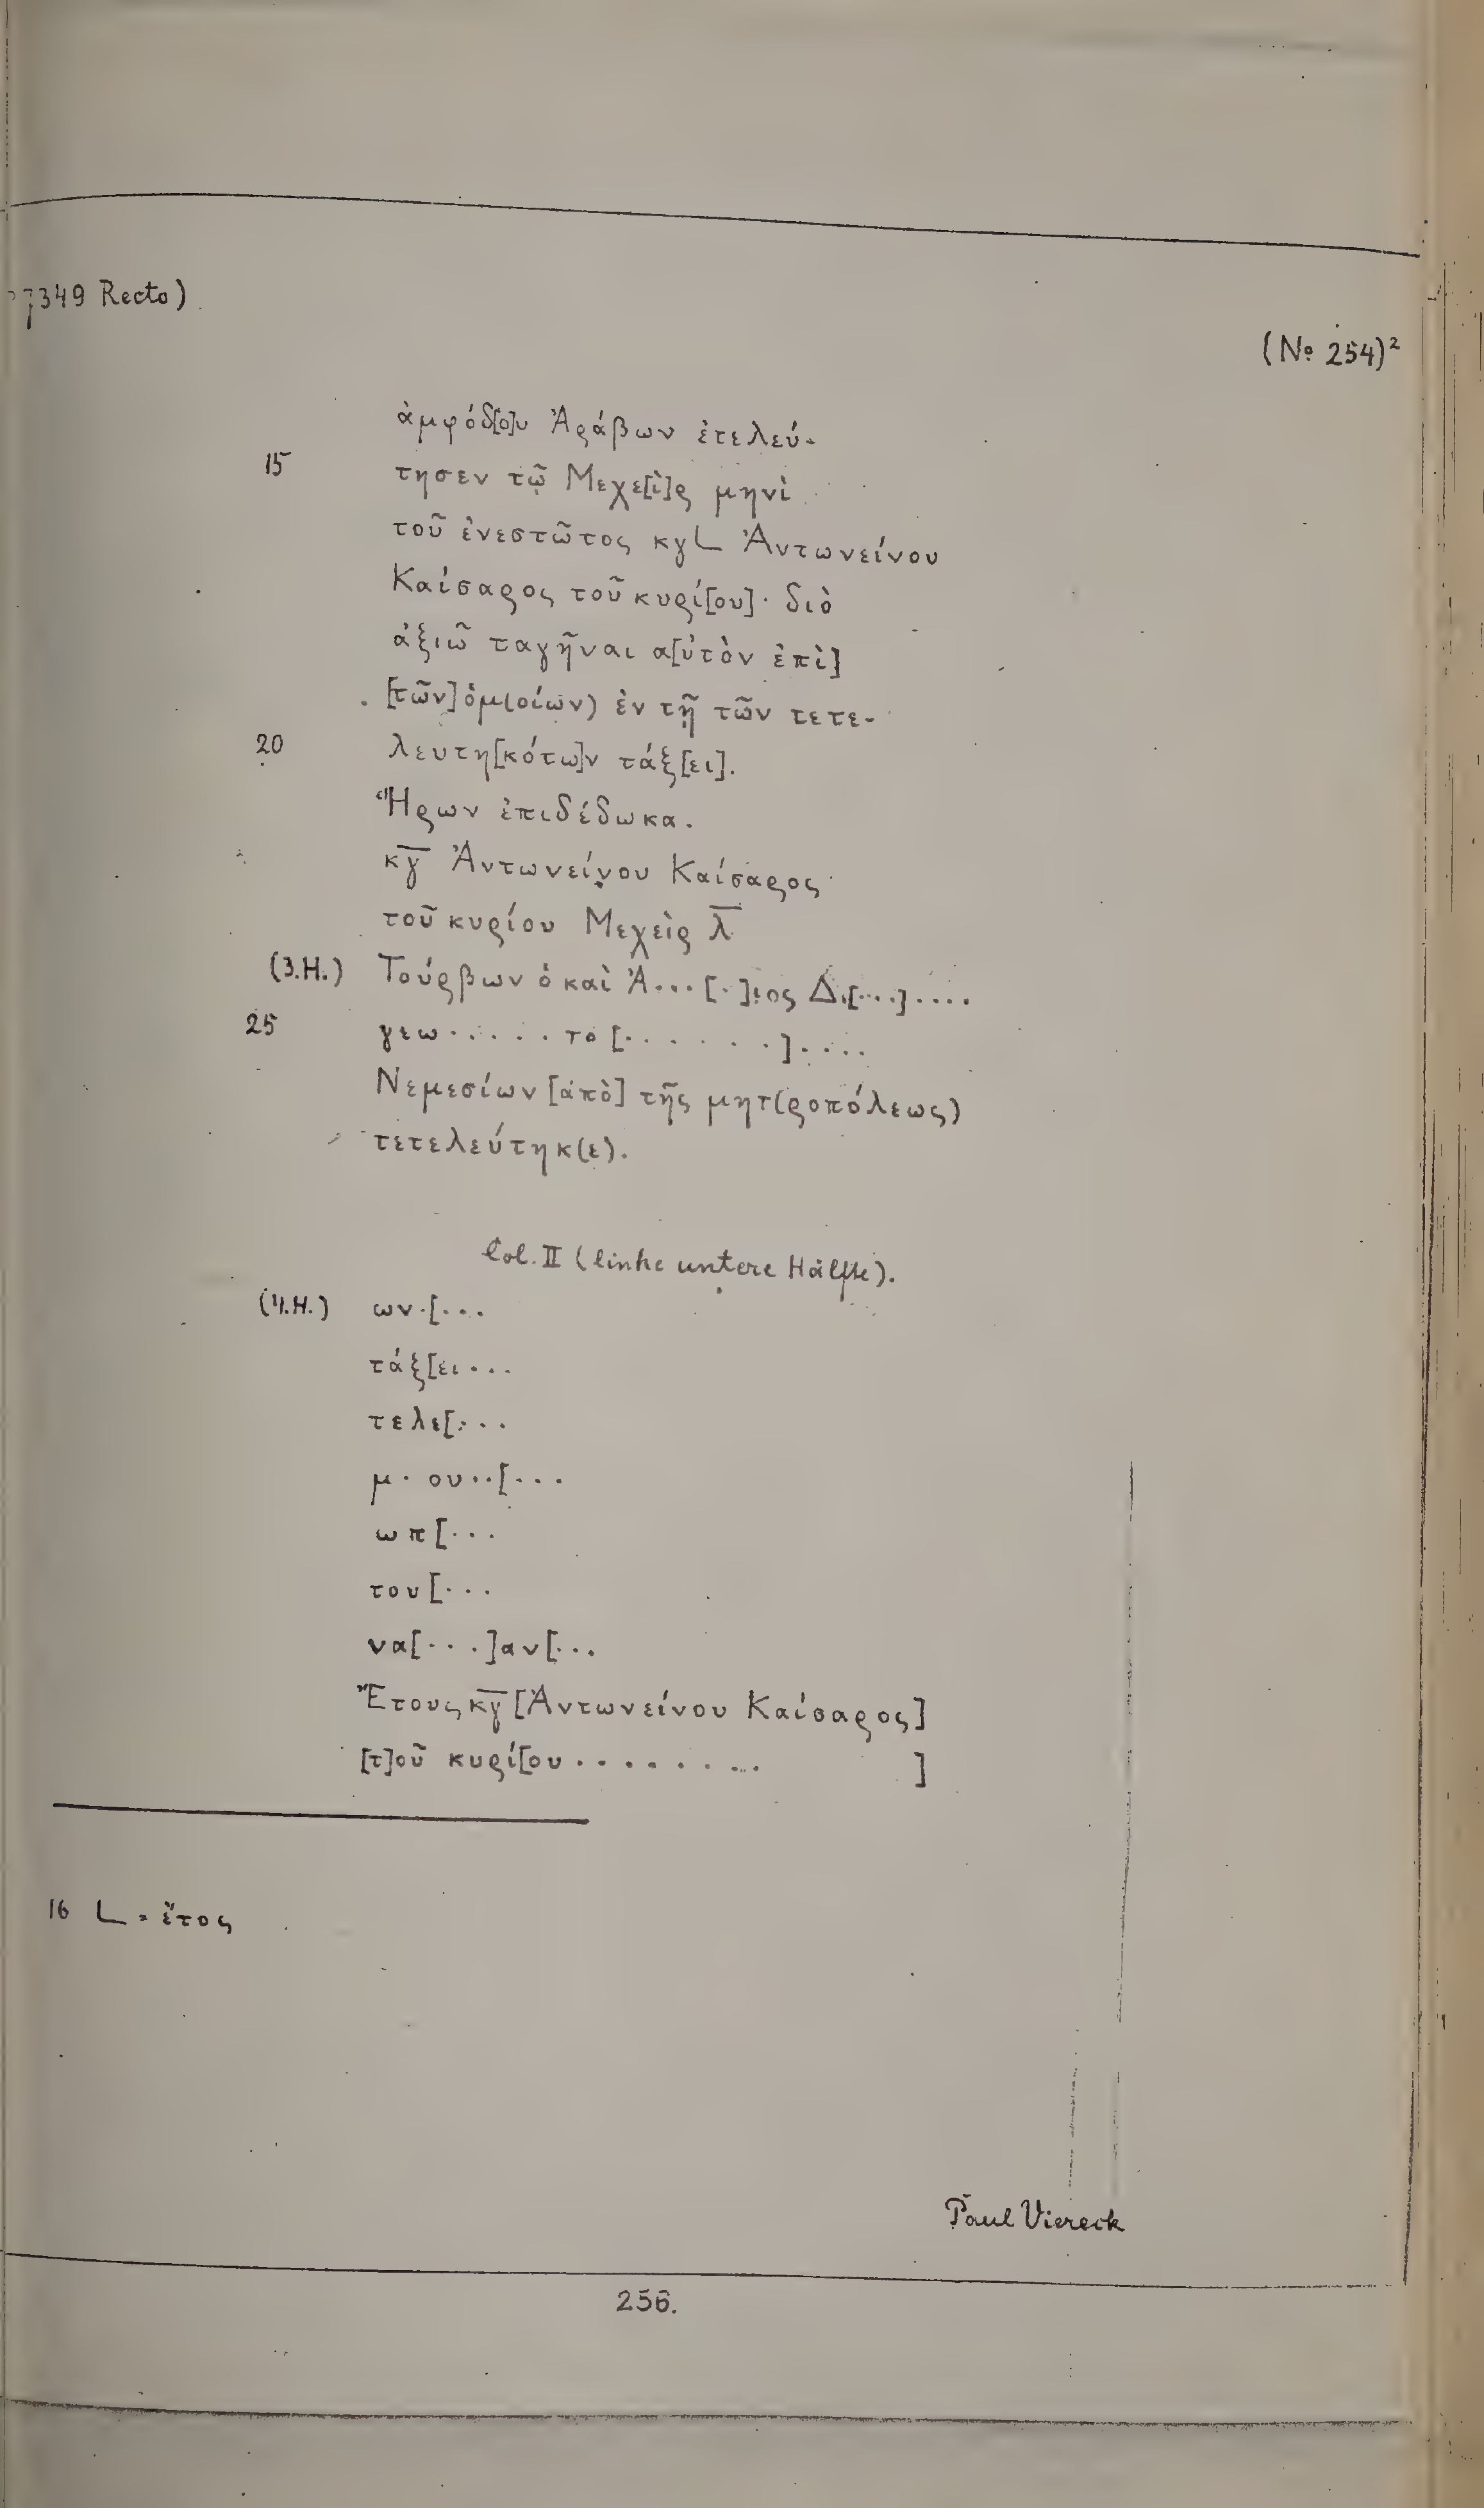 7349 Recto)
(No 254)²
ἀμφόδ[ο]υ Ἀράβων ἐτελεύ-
15 τησεν τῷ Μεχε[ὶ]ρ μηνὶ
τοῦ ἐνεστῶτος κγL Ἀντωνείνου
Καίσαρος τοῦ κυρί[ου]· διὸ
ἀξιῶ ταγῆναι α[ὐτὸν ἐπὶ]
[τῶν] ὁμ(οίων) ἐν τῇ τῶν τετε-
20 λευτη[κότω]ν τάξ[ει].
Ἥρων ἐπιδέδωκα.
κγ̅ Ἀντωνείνου Καίσαρος
τοῦ κυρίου Μεχεὶρ λ̅
(3.H.) Τούρβων ὁ καὶ Ἀ...[.]ιος Δι[...]....
25 γεω.....το[......]....
Νεμεσίων [ἀπὸ] τῆς μητ(ροπόλεως)
τετελεύτηκ(ε).
Col. II (linke untere Hälfte).
(4.H.) ων.[...
τάξ[ει...
τελε[...
μ.ου..[...
ωπ[...
του[...
να[...]αν[...
Ἔτους κγ̅ [Ἀντωνείνου Καίσαρος]
[τ]οῦ κυρί[ου......... ]
16 L = ἔτος
Paul Viereck
256.